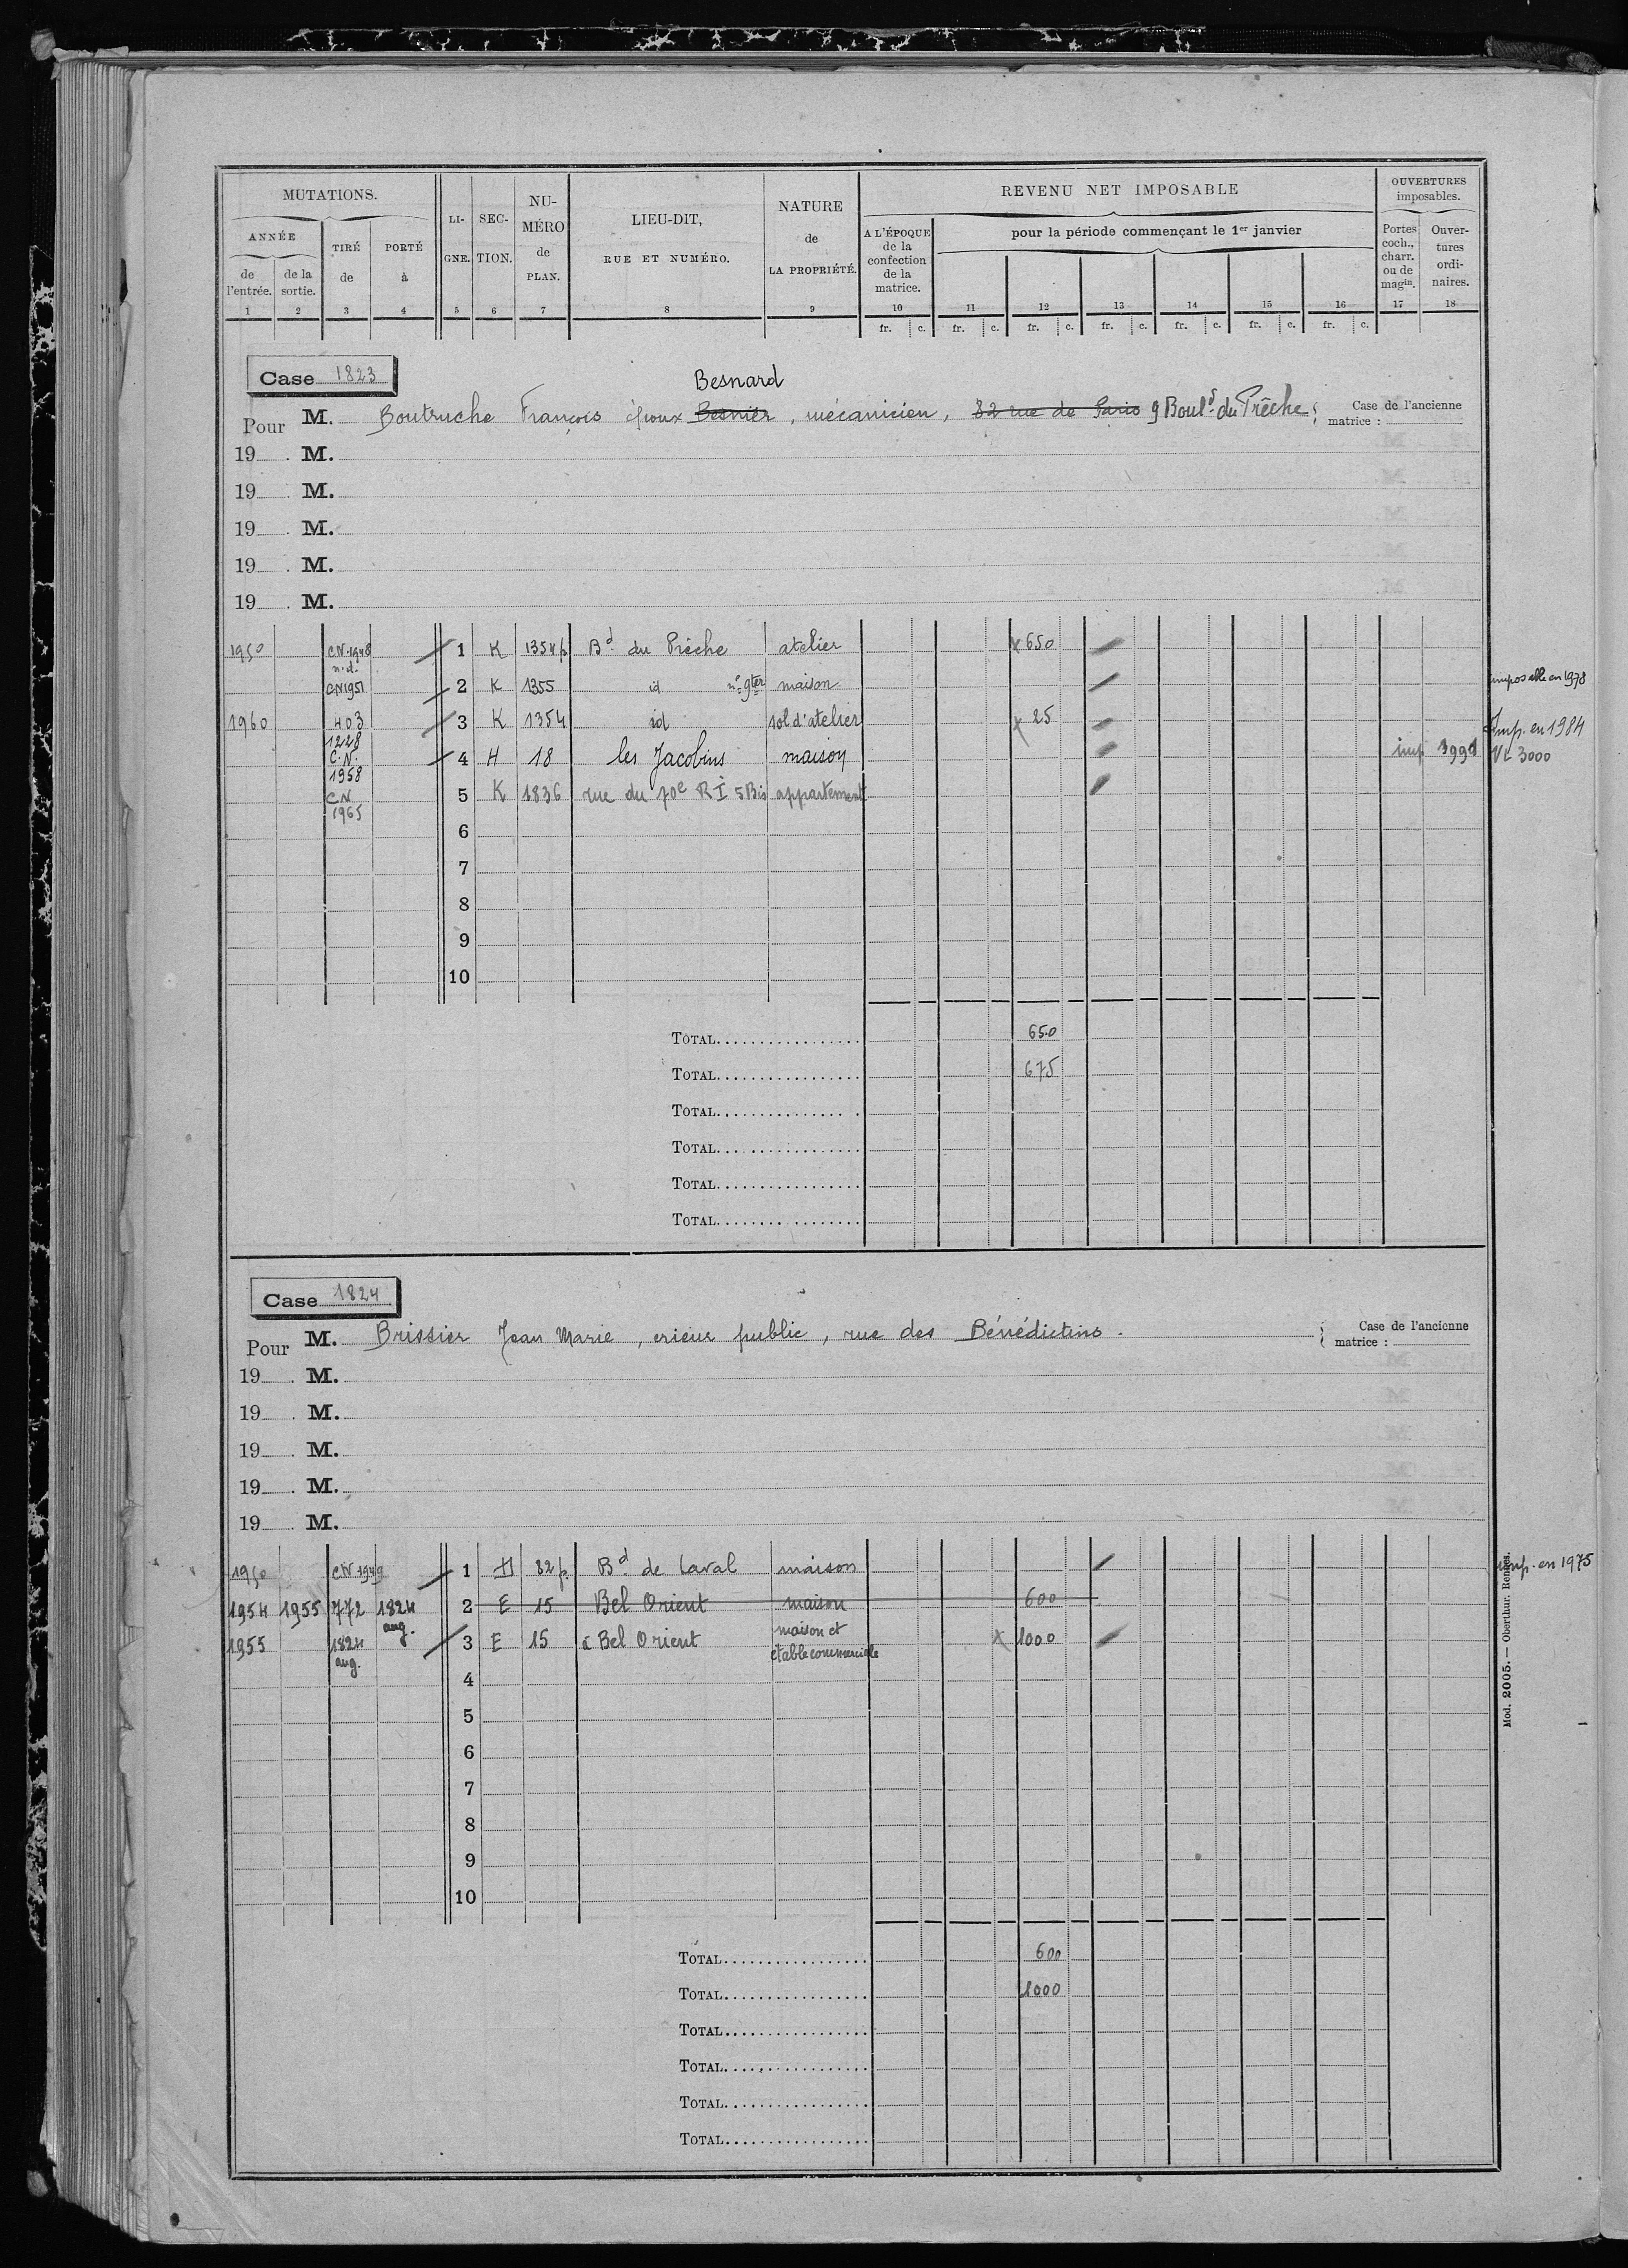 MUTATIONS. LI- SEC- NU- LIEU-DIT, NATURE REVENU NET IMPOSABLE OUVERTURES
GNE. TION. MÉRO RUE ET NUMÉRO. de imposables.
ANNÉE TIRÉ PORTÉ de LA PROPRIÉTÉ. A L'ÉPOQUE pour la période commençant le 1er janvier Portes Ouver-
de de la de à PLAN. de la coch., tures
l'entrée. sortie. confection charr. ordi-
de la ou de naires.
matrice. magin.
1 2 3 4 5 6 7 8 9 10 11 12 13 14 15 16 17 18
fr. c. fr. c. fr. c. fr. c. fr. c. fr. c. fr. c.
Case 1823
Besnard
Pour M. Boutruche François époux Besnier, mécanicien, 32 rue de Paris 9 Boul.d du Prêche; Case de l'ancienne
matrice :
19 . M.
19 . M.
19 . M.
19 . M.
19 . M.
1950 CN.1948 1 K 1354p Bd du Prêche atelier x 650
n.d.
CN1951 2 K 1355 id n° 9ter maison imposable en 1978
1960 403 3 K 1354 id sol d'atelier x 25 Imp. en 1984
1228
C.N. 4 H 18 les Jacobins maison imp VL 3000
1958
CN 5 K 1836 rue du 70e RI 5Bis appartement
1965
6
7
8
9
10
TOTAL................. 650
TOTAL................. 675
TOTAL.................
TOTAL.................
TOTAL.................
TOTAL.................
Case 1824
Pour M. Brissier Jean Marie, crieur public, rue des Bénédictins. Case de l'ancienne
matrice :
19 . M.
19 . M.
19 . M.
19 . M.
19 . M.
1950 CN 1949 1 H 82p. Bd de Laval maison imp. en 1975
1954 1955 772 1824 2 E 15 Bel Orient maison 600
aug.
1955 1824 3 E 15 à Bel Orient maison et x 1000
aug. etable commerciale
4
5
6
7
8
9
10
TOTAL................. 600
TOTAL................. 1000
TOTAL.................
TOTAL.................
TOTAL.................
TOTAL.................
Mod. 2005. — Oberthur. Rennes.